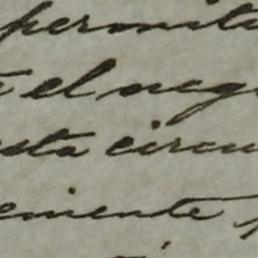 permiti
el neg
sta circu
emente